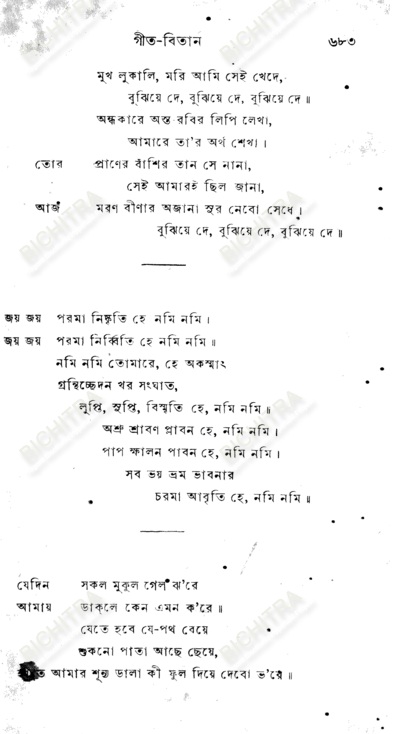 গীত-বিতান ৬৮৩
মুখ লুকালি, মরি আমি সেই খেদে,
বুঝিয়ে দে, বুঝিয়ে দে, বুঝিয়ে দে॥
অন্ধকারে অস্ত রবির লিপি লেখা,
আমারে তা'র অর্থ শেখা।
তোর প্রাণের বাঁশির তান সে নানা,
সেই আমারই ছিল জানা,
আজ মরণ বীণার অজানা সুর নেবো সেধে।
বুঝিয়ে দে, বুঝিয়ে দে, বুঝিয়ে দে॥
জয় জয় পরমা নিষ্কৃতি হে নমি নমি।
জয় জয় পরমা নির্বৃতি হে নমি নমি॥
নমি নমি তোমারে, হে অকস্মাৎ
গ্রন্থিচ্ছেদন খর সংঘাত,
লুপ্তি, সুপ্তি, বিস্মৃতি হে, নমি নমি॥
অশ্রু শ্রাবণ প্লাবন হে, নমি নমি।
পাপ ক্ষালন পাবন হে, নমি নমি।
সব ভয় ভ্রম ভাবনার
চরমা আবৃতি হে, নমি নমি॥
যেদিন সকল মুকুল গেল ঝ'রে
আমায় ডাকলে কেন এমন ক'রে॥
যেতে হবে যে-পথ বেয়ে
শুকনো পাতা আছে ছেয়ে,
আমার শূন্য ডালা কী ফুল দিয়ে দেবো ভ'রে॥
BICHITRA